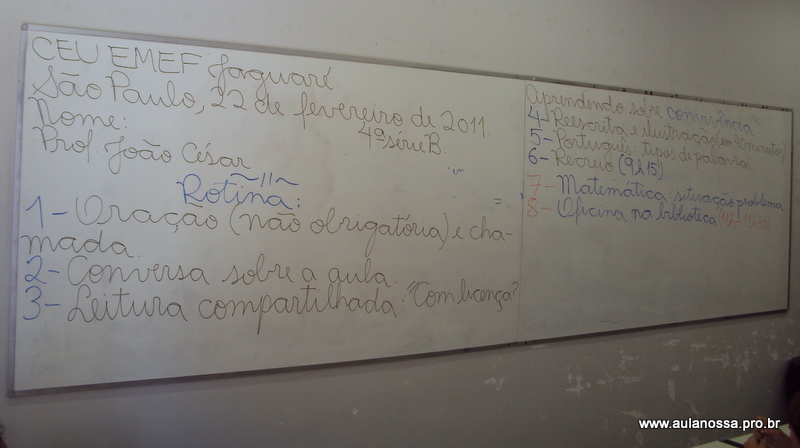 CEU EMEF Jaguaré.
São Paulo, 22 de fevereiro de 2011.
Nome: 4ª série B.
Prof. João César
~//~
Rotina:
1- Oração (não obrigatória) e cha-
mada.
2- Conversa sobre a aula.
3- Leitura compartilhada: "Com licença?
Aprendendo sobre convivência
4- Reescrita e ilustração (em 90 minutos)
5- Português: tipos de palavras
6- Recreio (9h15)
7- Matemática: situação problema
8- Oficina na biblioteca
www.aulanossa.pro.br